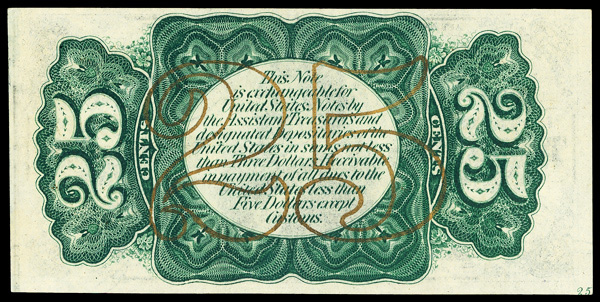 25
CENTS
25
This Note
is exchangeable for
United States Notes by
the Assistant Treasurers and
designated Depositaries of the
United States in sums not less
than Three Dollars. Receivable
in payment of all dues to the
United States less than
Five Dollars except
Customs.
CENTS
25
25